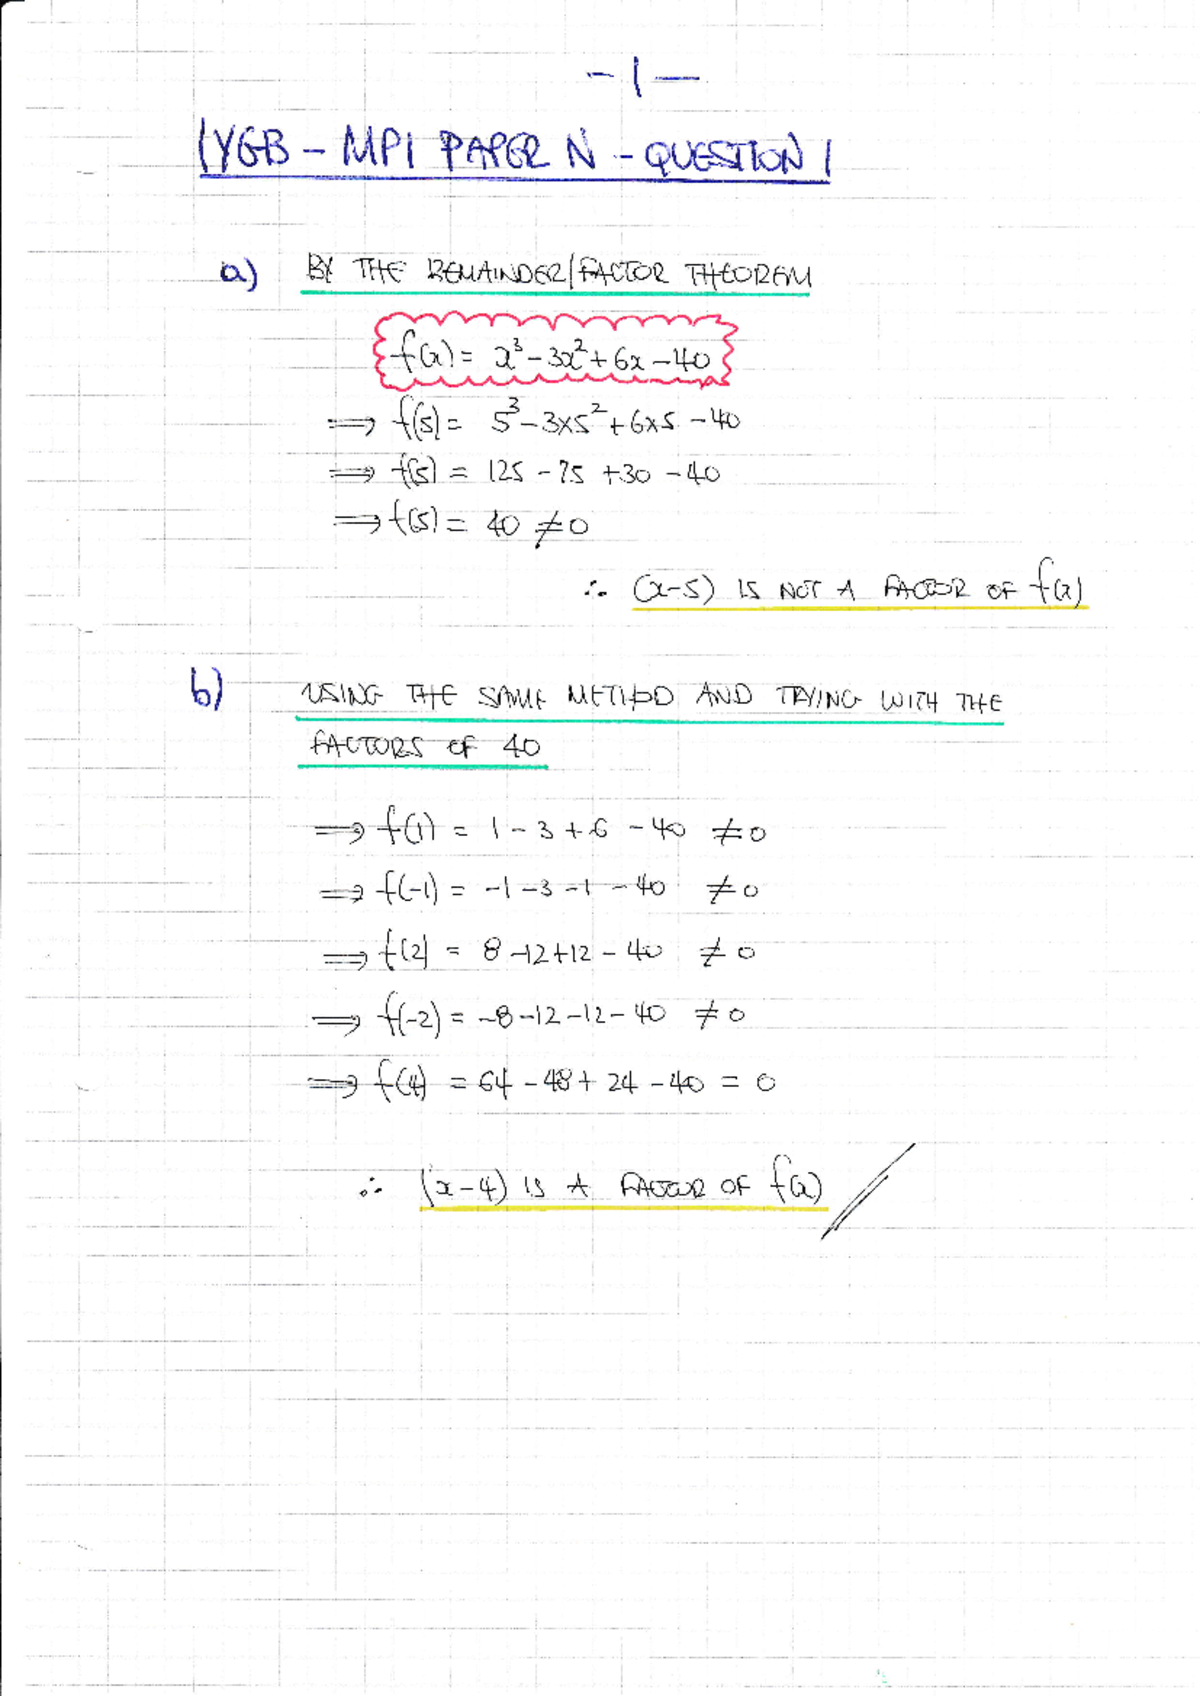 -1-
IYGB - MP1 PAPER N - QUESTION 1
a) BY THE REMAINDER/FACTOR THEOREM
f(x) = x³ - 3x² + 6x - 40
⟹ f(5) = 5³ - 3×5² + 6×5 - 40
⟹ f(5) = 125 - 75 + 30 - 40
⟹ f(5) = 40 ≠ 0
∴ (x-5) IS NOT A FACTOR OF f(x)
b) USING THE SAME METHOD AND TRYING WITH THE
FACTORS OF 40
⟹ f(1) = 1 - 3 + 6 - 40 ≠ 0
⟹ f(-1) = -1 - 3 - 1 - 40 ≠ 0
⟹ f(2) = 8 - 12 + 12 - 40 ≠ 0
⟹ f(-2) = -8 - 12 - 12 - 40 ≠ 0
⟹ f(4) = 64 - 48 + 24 - 40 = 0
∴ (x-4) IS A FACTOR OF f(x)